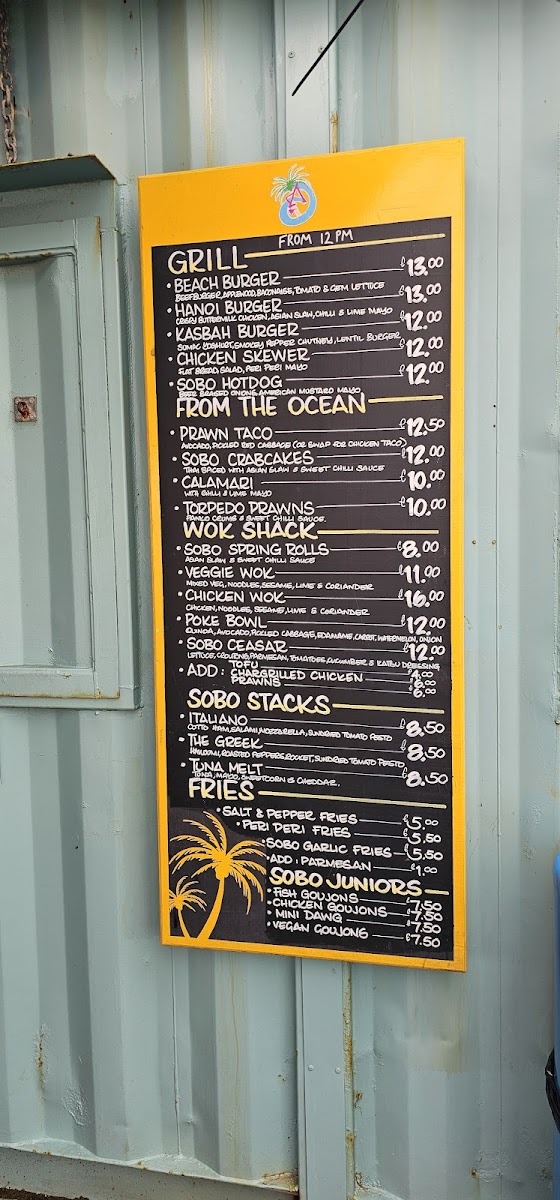 FROM 12PM
GRILL
• BEACH BURGER £13.00
BEEFBURGER, APPLEWOOD, BACONAISE, TOMATO & GEM LETTUCE
• HANOI BURGER £13.00
CRISPY BUTTERMILK CHICKEN, ASIAN SLAW, CHILLI & LIME MAYO
• KASBAH BURGER £12.00
SUMAC YOGHURT, SMOKEY PEPPER CHUTNEY, LENTIL BURGER
• CHICKEN SKEWER £12.00
FLAT BREAD, SALAD, PERI PERI MAYO
• SOBO HOTDOG £12.00
BEER BRAISED ONIONS, AMERICAN MUSTARD MAYO
FROM THE OCEAN
• PRAWN TACO £12.50
AVOCADO, PICKLED RED CABBAGE (OR SWAP FOR CHICKEN TACO)
• SOBO CRABCAKES £12.00
THAI SPICED WITH ASIAN SLAW & SWEET CHILLI SAUCE
• CALAMARI £10.00
WITH CHILLI & LIME MAYO
• TORPEDO PRAWNS £10.00
PANKO CRUMB & SWEET CHILLI SAUCE.
WOK SHACK
• SOBO SPRING ROLLS £8.00
ASIAN SLAW & SWEET CHILLI SAUCE
• VEGGIE WOK £11.00
MIXED VEG, NOODLES, SESAME, LIME & CORIANDER
• CHICKEN WOK £16.00
CHICKEN, NOODLES, SESAME, LIME & CORIANDER
• POKE BOWL £12.00
QUINOA, AVOCADO, PICKLED CABBAGE, EDAMAME, CARROT, WATERMELON, ONION
• SOBO CEASAR £12.00
LETTUCE, CROUTONS, PARMESAN, TOMATOES, CUCUMBER & KATSU DRESSING
• ADD: TOFU £4.00
CHARGRILLED CHICKEN £6.00
PRAWNS £6.00
SOBO STACKS
• ITALIANO £8.50
COTTO HAM, SALAMI, MOZZARELLA, SUNDRIED TOMATO PESTO
• THE GREEK £8.50
HALLOUMI, ROASTED PEPPERS, ROCKET, SUNDRIED TOMATO PESTO
• TUNA MELT £8.50
TUNA, MAYO, SWEETCORN & CHEDDAR.
FRIES
• SALT & PEPPER FRIES £5.00
• PERI PERI FRIES £5.50
• SOBO GARLIC FRIES £5.50
• ADD: PARMESAN £1.00
SOBO JUNIORS
• FISH GOUJONS £7.50
• CHICKEN GOUJONS £7.50
• MINI DAWG £7.50
• VEGAN GOUJONS £7.50